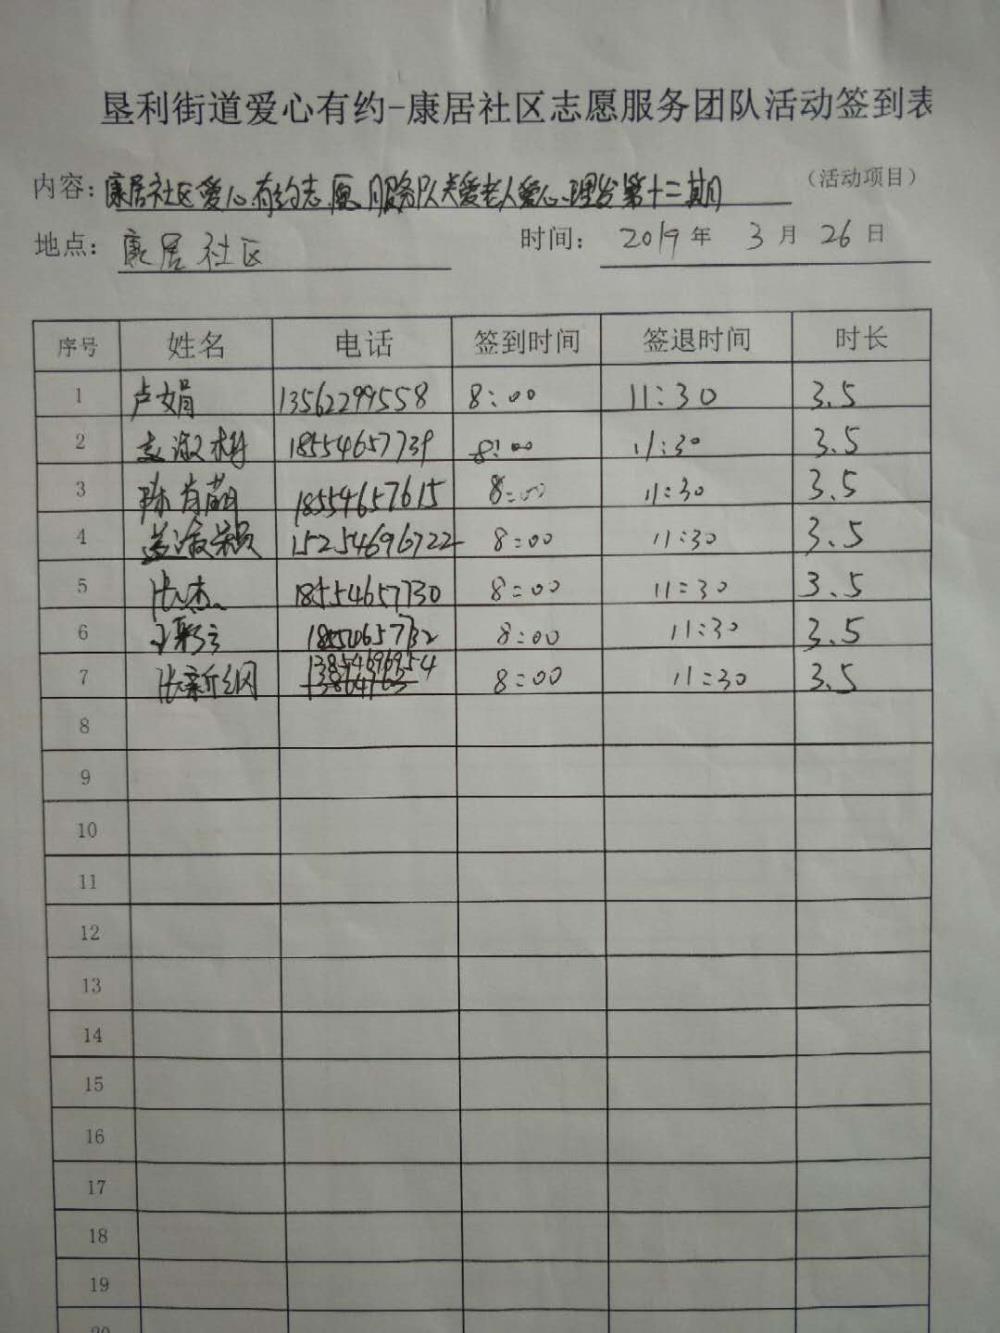 垦利街道爱心有约-康居社区志愿服务团队活动签到表
内容：康居社区爱心有约志愿服务队关爱老人爱心理发第十二期 （活动项目）
地点：康居社区 时间：2019年 3月 26日
序号 姓名 电话 签到时间 签退时间 时长
1 卢娟 13562299558 8:00 11:30 3.5
2 18554657739 8:00 11:30 3.5
3 陈肖萌 18554657615 8:00 11:30 3.5
4 15254696722 8:00 11:30 3.5
5 张杰 18554657730 8:00 11:30 3.5
6 8:00 11:30 3.5
7 张新纲 13854696954 8:00 11:30 3.5
8
9
10
11
12
13
14
15
16
17
18
19
20